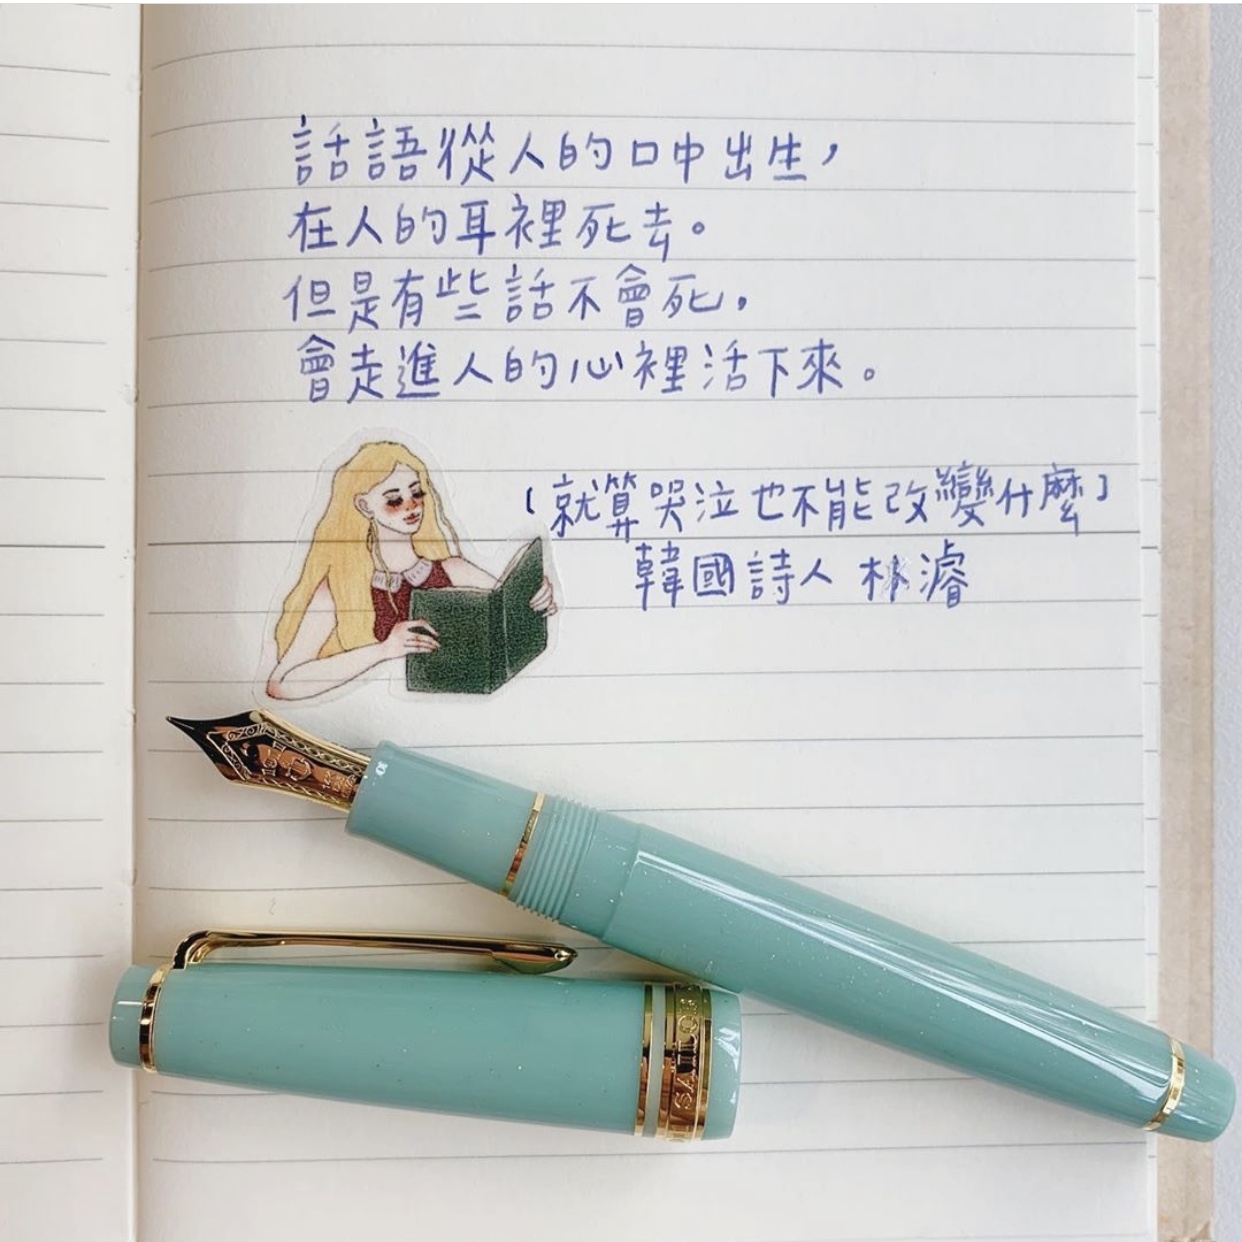 話語從人的口中出生，
在人的耳裡死去。
但是有些話不會死，
會走進人的心裡活下來。
〔就算哭泣也不能改變什麼〕
韓國詩人 朴濬
SAILOR